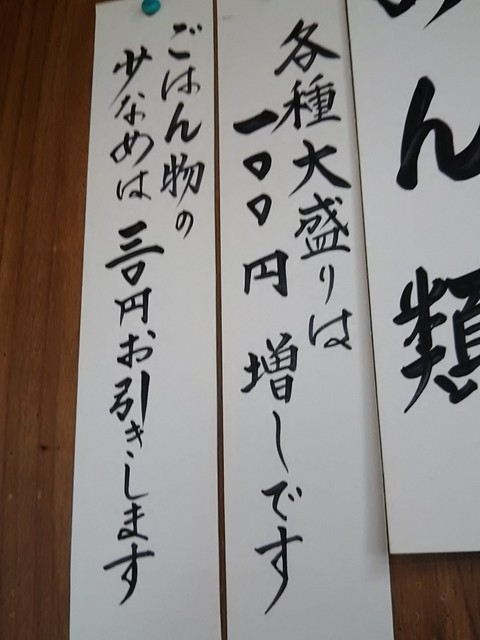 ん類
各種大盛りは
一〇〇円 増しです
ごはん物の
少なめは 三〇円お引きします